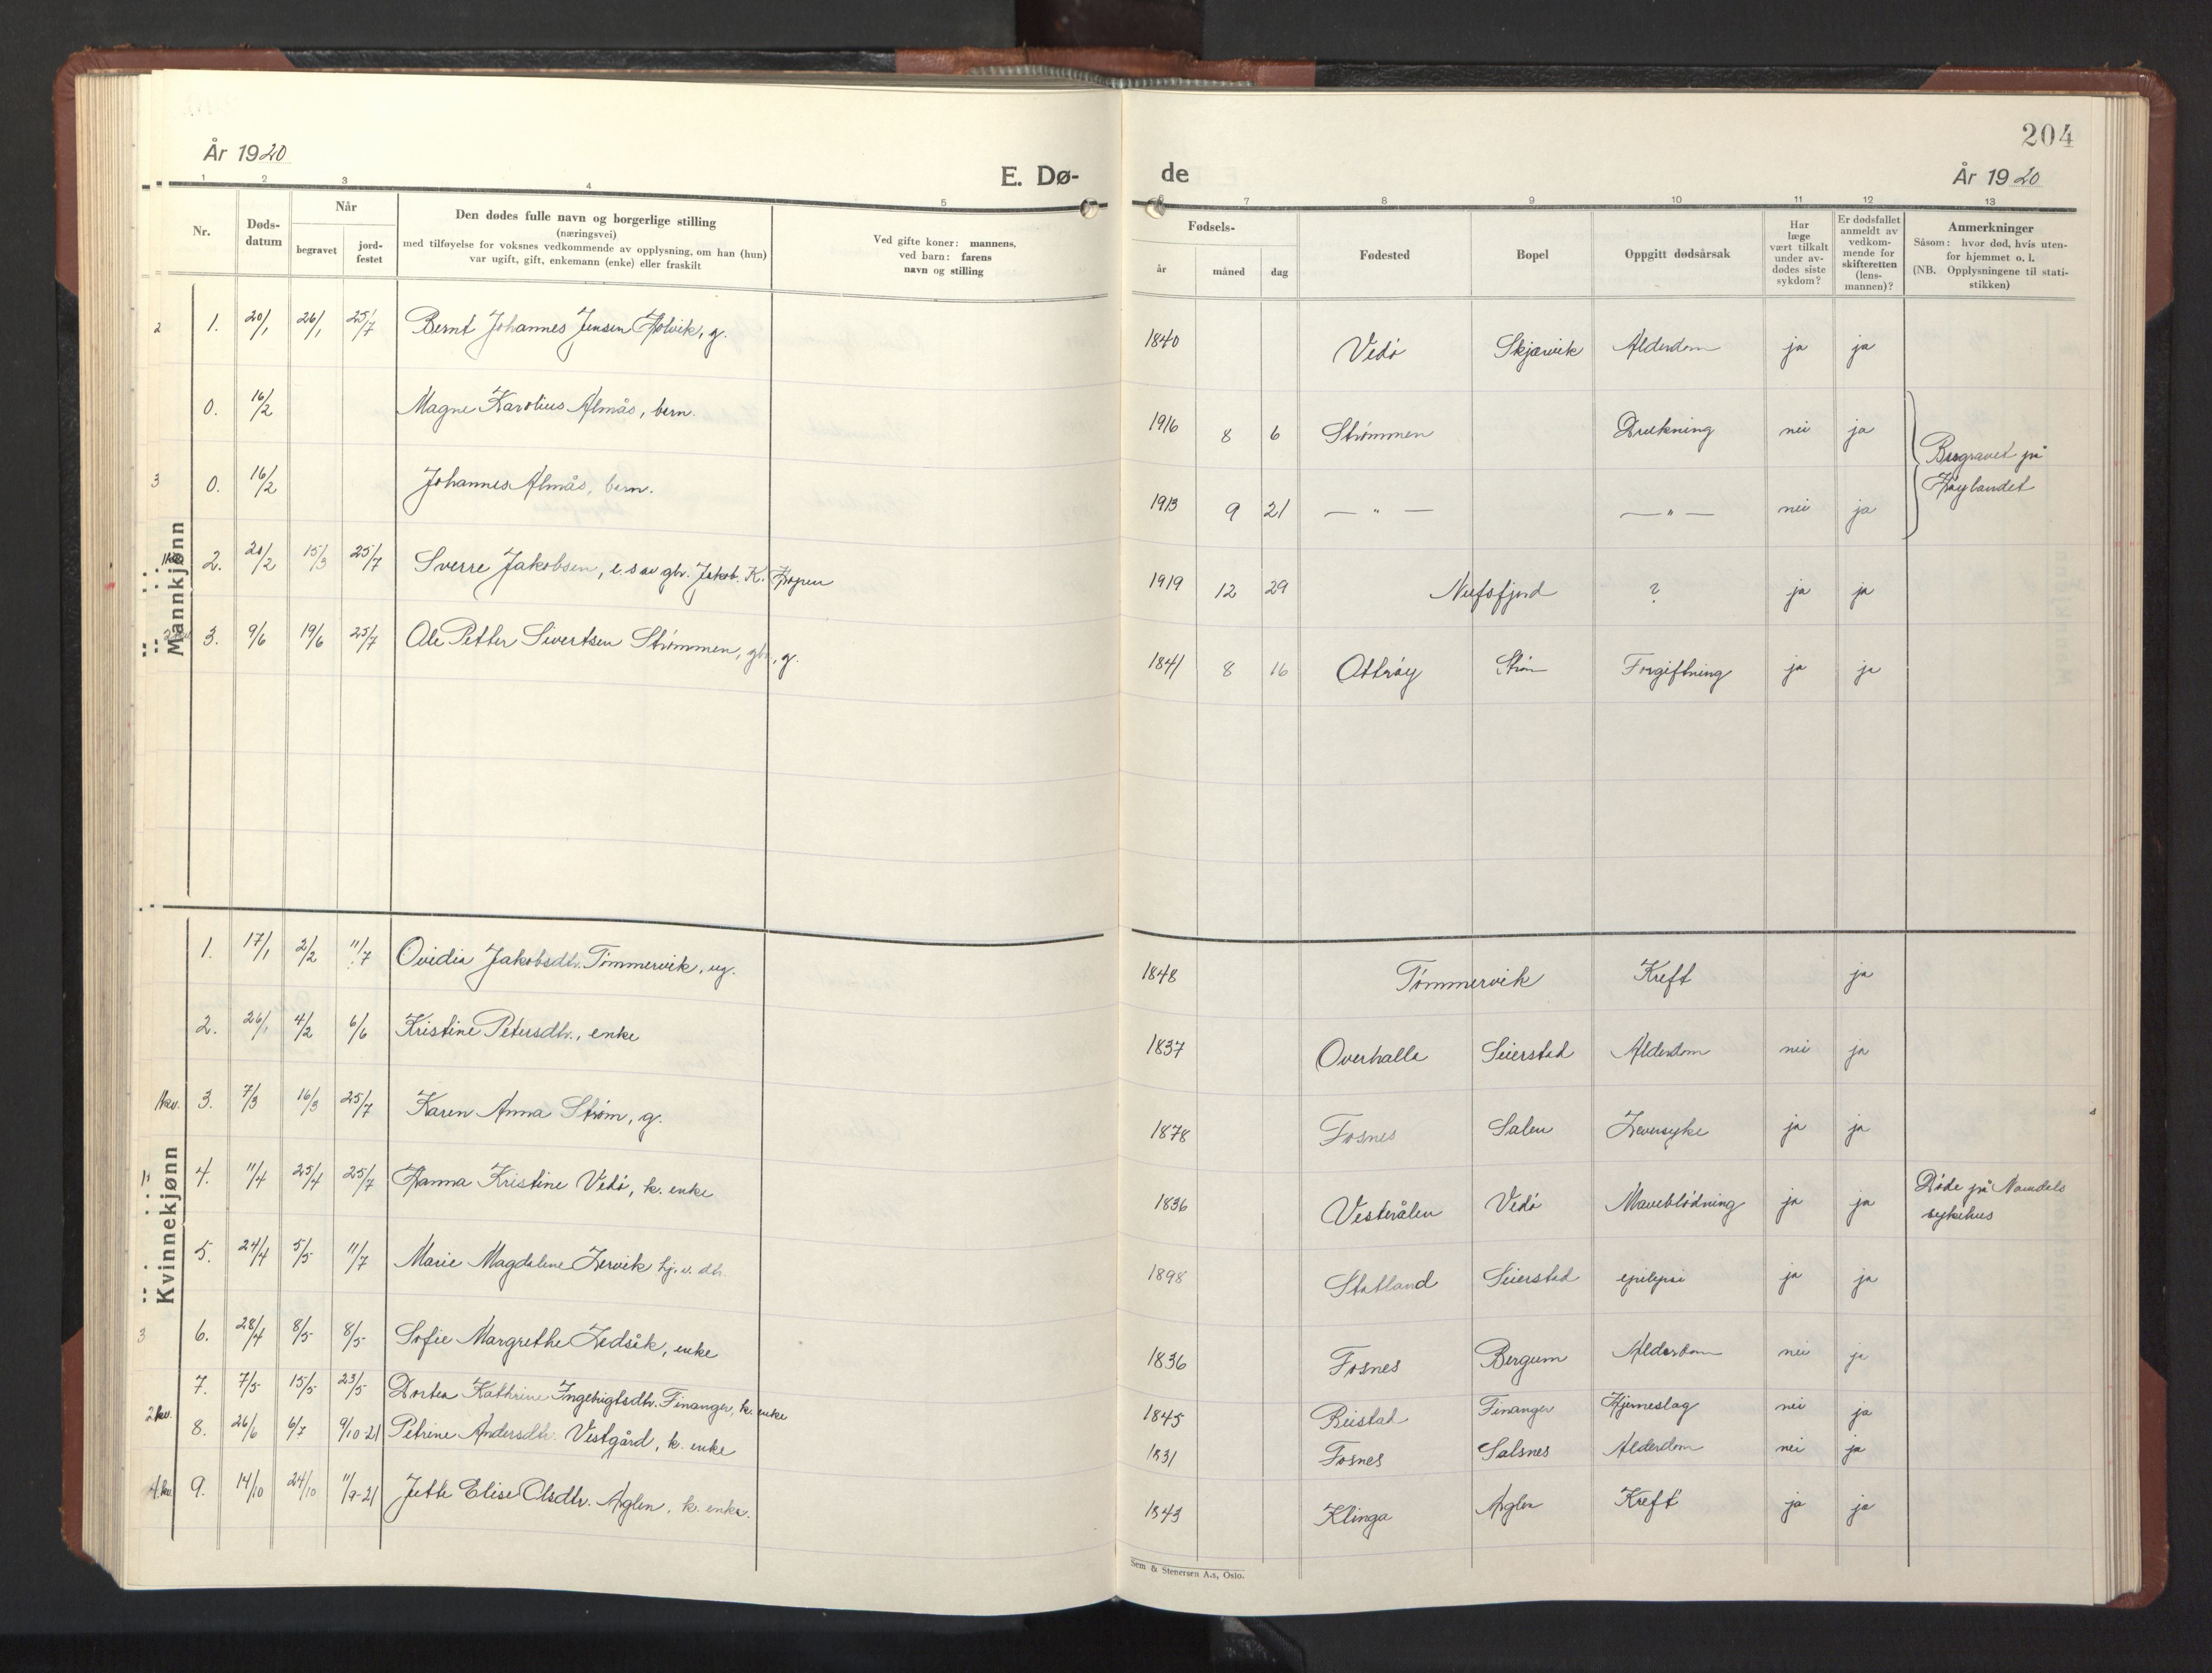 204
År 1920
E. Dø-
de
År 1920
1 2 3 4 5
6 7 8 9 10 11 12 13
Nr.
Døds-
datum
Når
begravet
jord-
festet
Den dødes fulle navn og borgerlige stilling
(næringsvei)
med tilføyelse for voksnes vedkommende av opplysning, om han (hun)
var ugift, gift, enkemann (enke) eller fraskilt
Ved gifte koner: mannens,
ved barn: farens
navn og stilling
Fødsels-
år
måned
dag
Fødested
Bopel
Oppgitt dødsårsak
Har
læge
vært tilkalt
under av-
dødes siste
sykdom?
Er dødsfallet
anmeldt av
vedkom-
mende for
skifteretten
(lens-
mannen)?
Anmerkninger
Såsom: hvor død, hvis uten-
for hjemmet o. l.
(NB. Opplysningene til stati-
stikken)
Mannkjønn
2 1. 20/1 26/1 25/7 Bernt Johannes Jensen Holvik, g. 1840 Vedø Skjærvik Alderdom ja ja
0. 16/2 Magne Karolius Almås, barn. 1916 8 6 Strømmen Drukning nei ja
3 0. 16/2 Johannes Almås, barn. 1913 9 21 — " — — " — nei ja
Begravet på
Høylandet
2. 20/2 15/3 25/7 Sverre Jakobsen, e. s av gbr. Jakob. K. Hopen 1919 12 29 Nufsfjord ? ja ja
3. 9/6 19/6 25/7 Ole Petter Sivertsen Strømmen, gbr, g. 1841 8 16 Otterøy Strøm Forgiftning ja ja
Kvinnekjønn
1. 17/1 2/2 11/7 Ovidia Jakobsdtr. Tømmervik, ug. 1848 Tømmervik Kreft ja
2. 26/1 4/2 6/6 Kristine Petersdtr., enke 1837 Overhalla Seierstad Alderdom nei ja
1kv. 3. 7/3 16/3 25/7 Karen Anna Strøm, g. 1878 Fosnes Salen Leversyke ja ja
4. 11/4 25/4 25/7 Hanna Kristine Vedø, k. enke 1836 Vesterålen Vedø Maveblødning ja ja Døde på Namdals
sykehus
5. 24/4 5/5 11/7 Marie Magdalene Lervik hj. v. dtr. 1898 Statland Seierstad epilepsi ja ja
3 6. 28/4 8/5 8/5 Sofie Margrethe Ledsåk, enke 1836 Fosnes Bergum Alderdom nei ja
7. 7/5 15/5 23/5 Dortea Kathrine Ingebrigtsdtr. Finanger, k. enke 1845 Reistad Finanger Hjerneslag nei ja
2kv. 8. 26/6 6/7 9/10-21 Petrine Andersdtr. Vestgård, k. enke 1831 Fosnes Salsnes Alderdom nei ja
4kv. 9. 14/10 24/10 11/9-21 Jette Elise Olsdtr. Aglen, k. enke. 1843 Klinga Aglen Kreft ja ja
Sem & Stenersen A.s, Oslo.